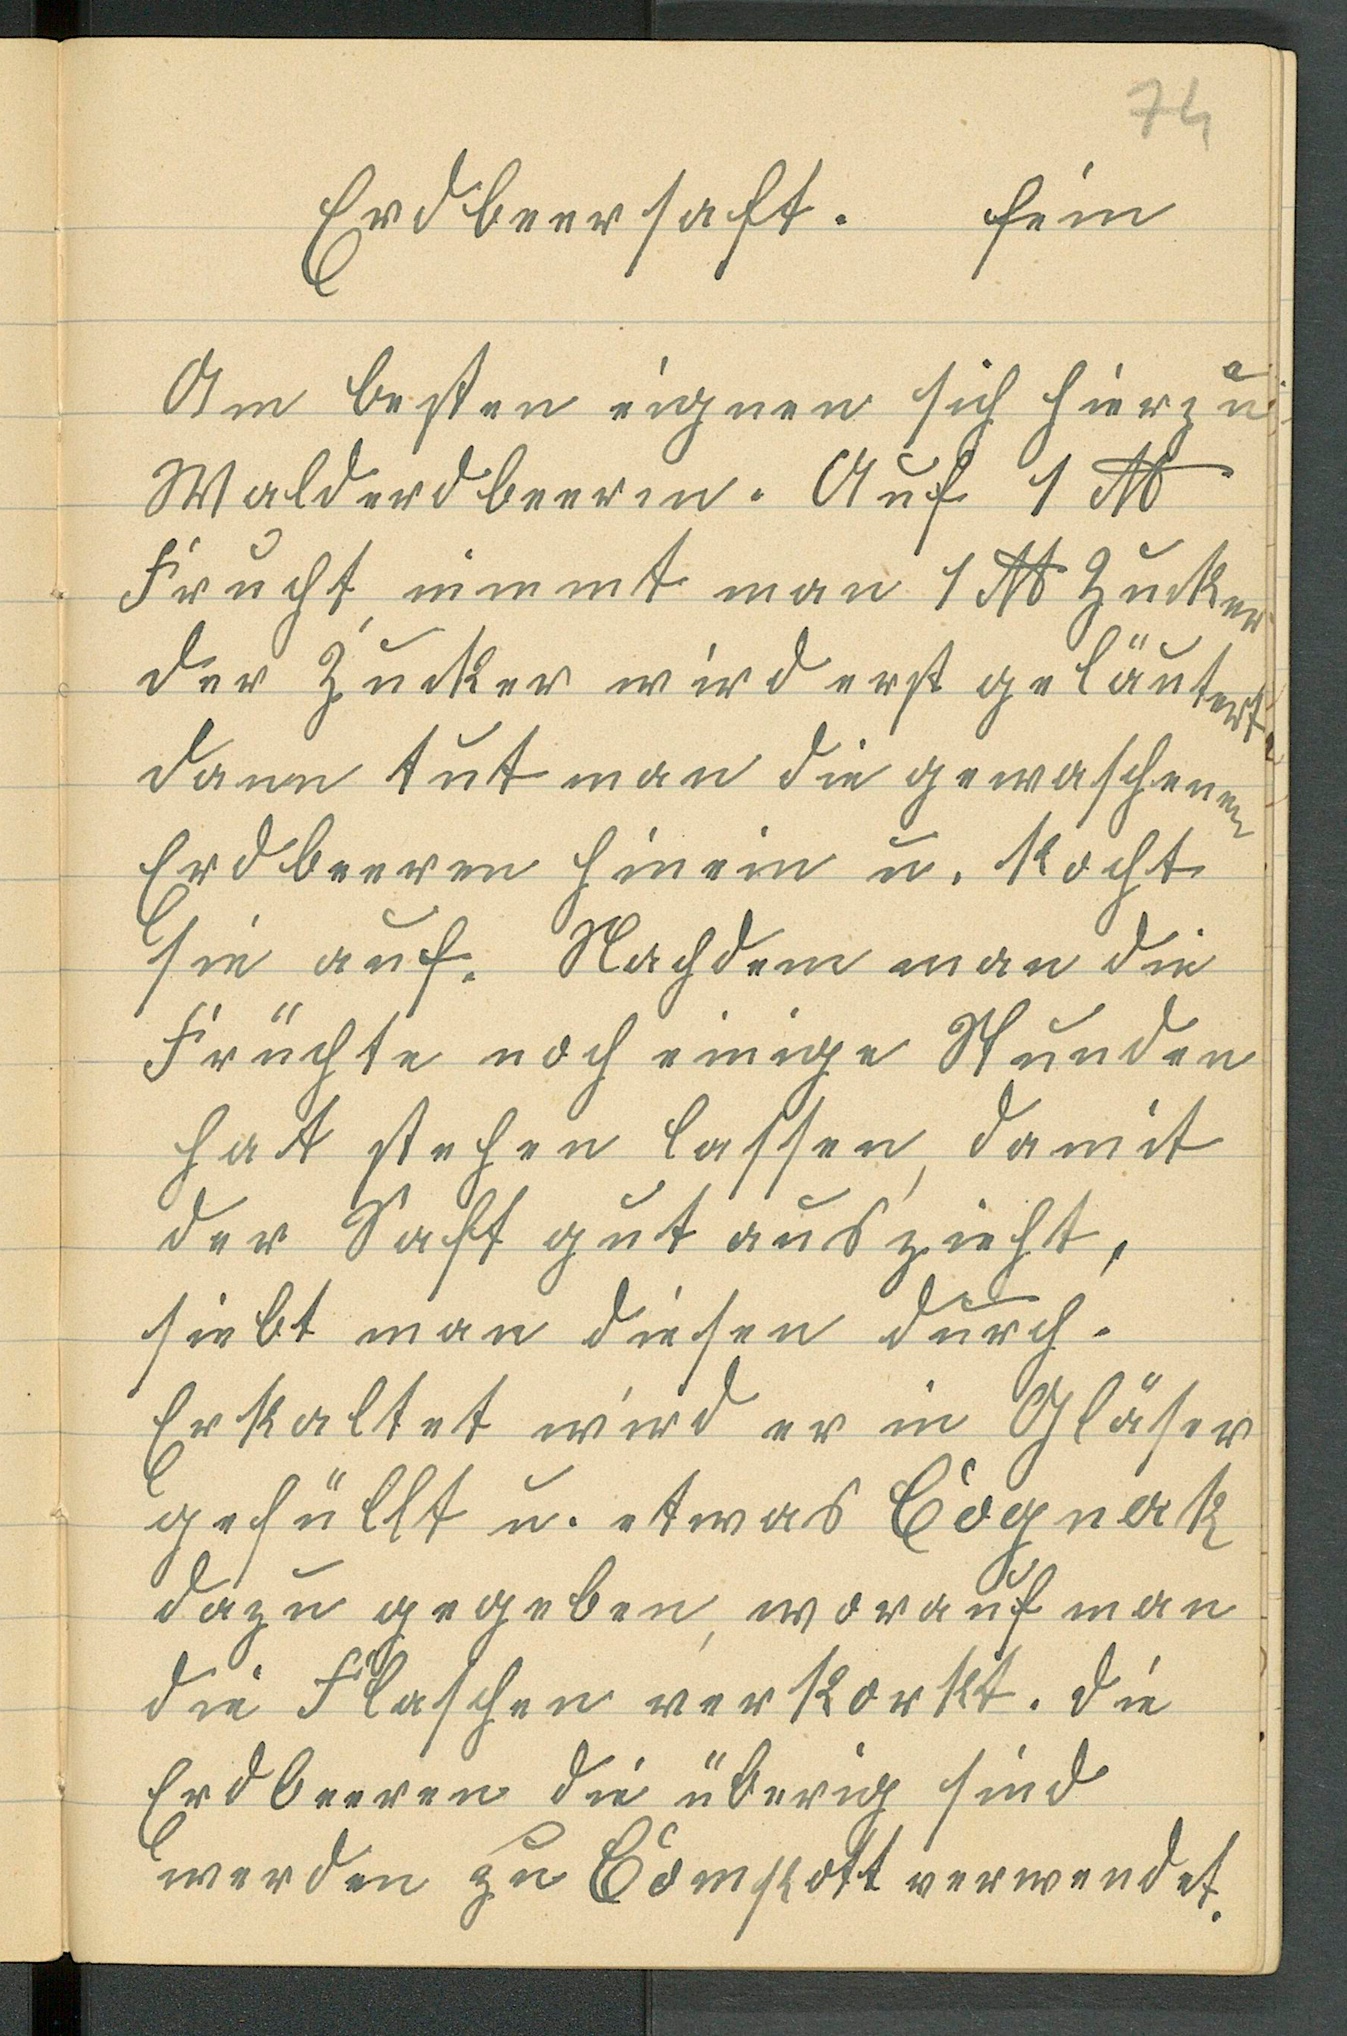 74
Erdbeersaft. fein
Am besten eignen sich hierzu
Walderdbeeren. Auf 1 ℔
Frucht nimmt man 1 ℔ Zucker
der Zucker wird erst geläutert
dann tut man die gewaschenen
Erdbeeren hinein u. kocht
sie auf. Nachdem man die
Früchte noch einige Stunden
hat stehen lassen, damit
der Saft gut auszieht,
siebt man diesen durch.
Erkaltet wird er in Gläser
gefüllt u. etwas Cognak
dazu gegeben, worauf man
die Flaschen verkorkt. die
Erdbeeren die überig sind
werden zu Compott verwendet.